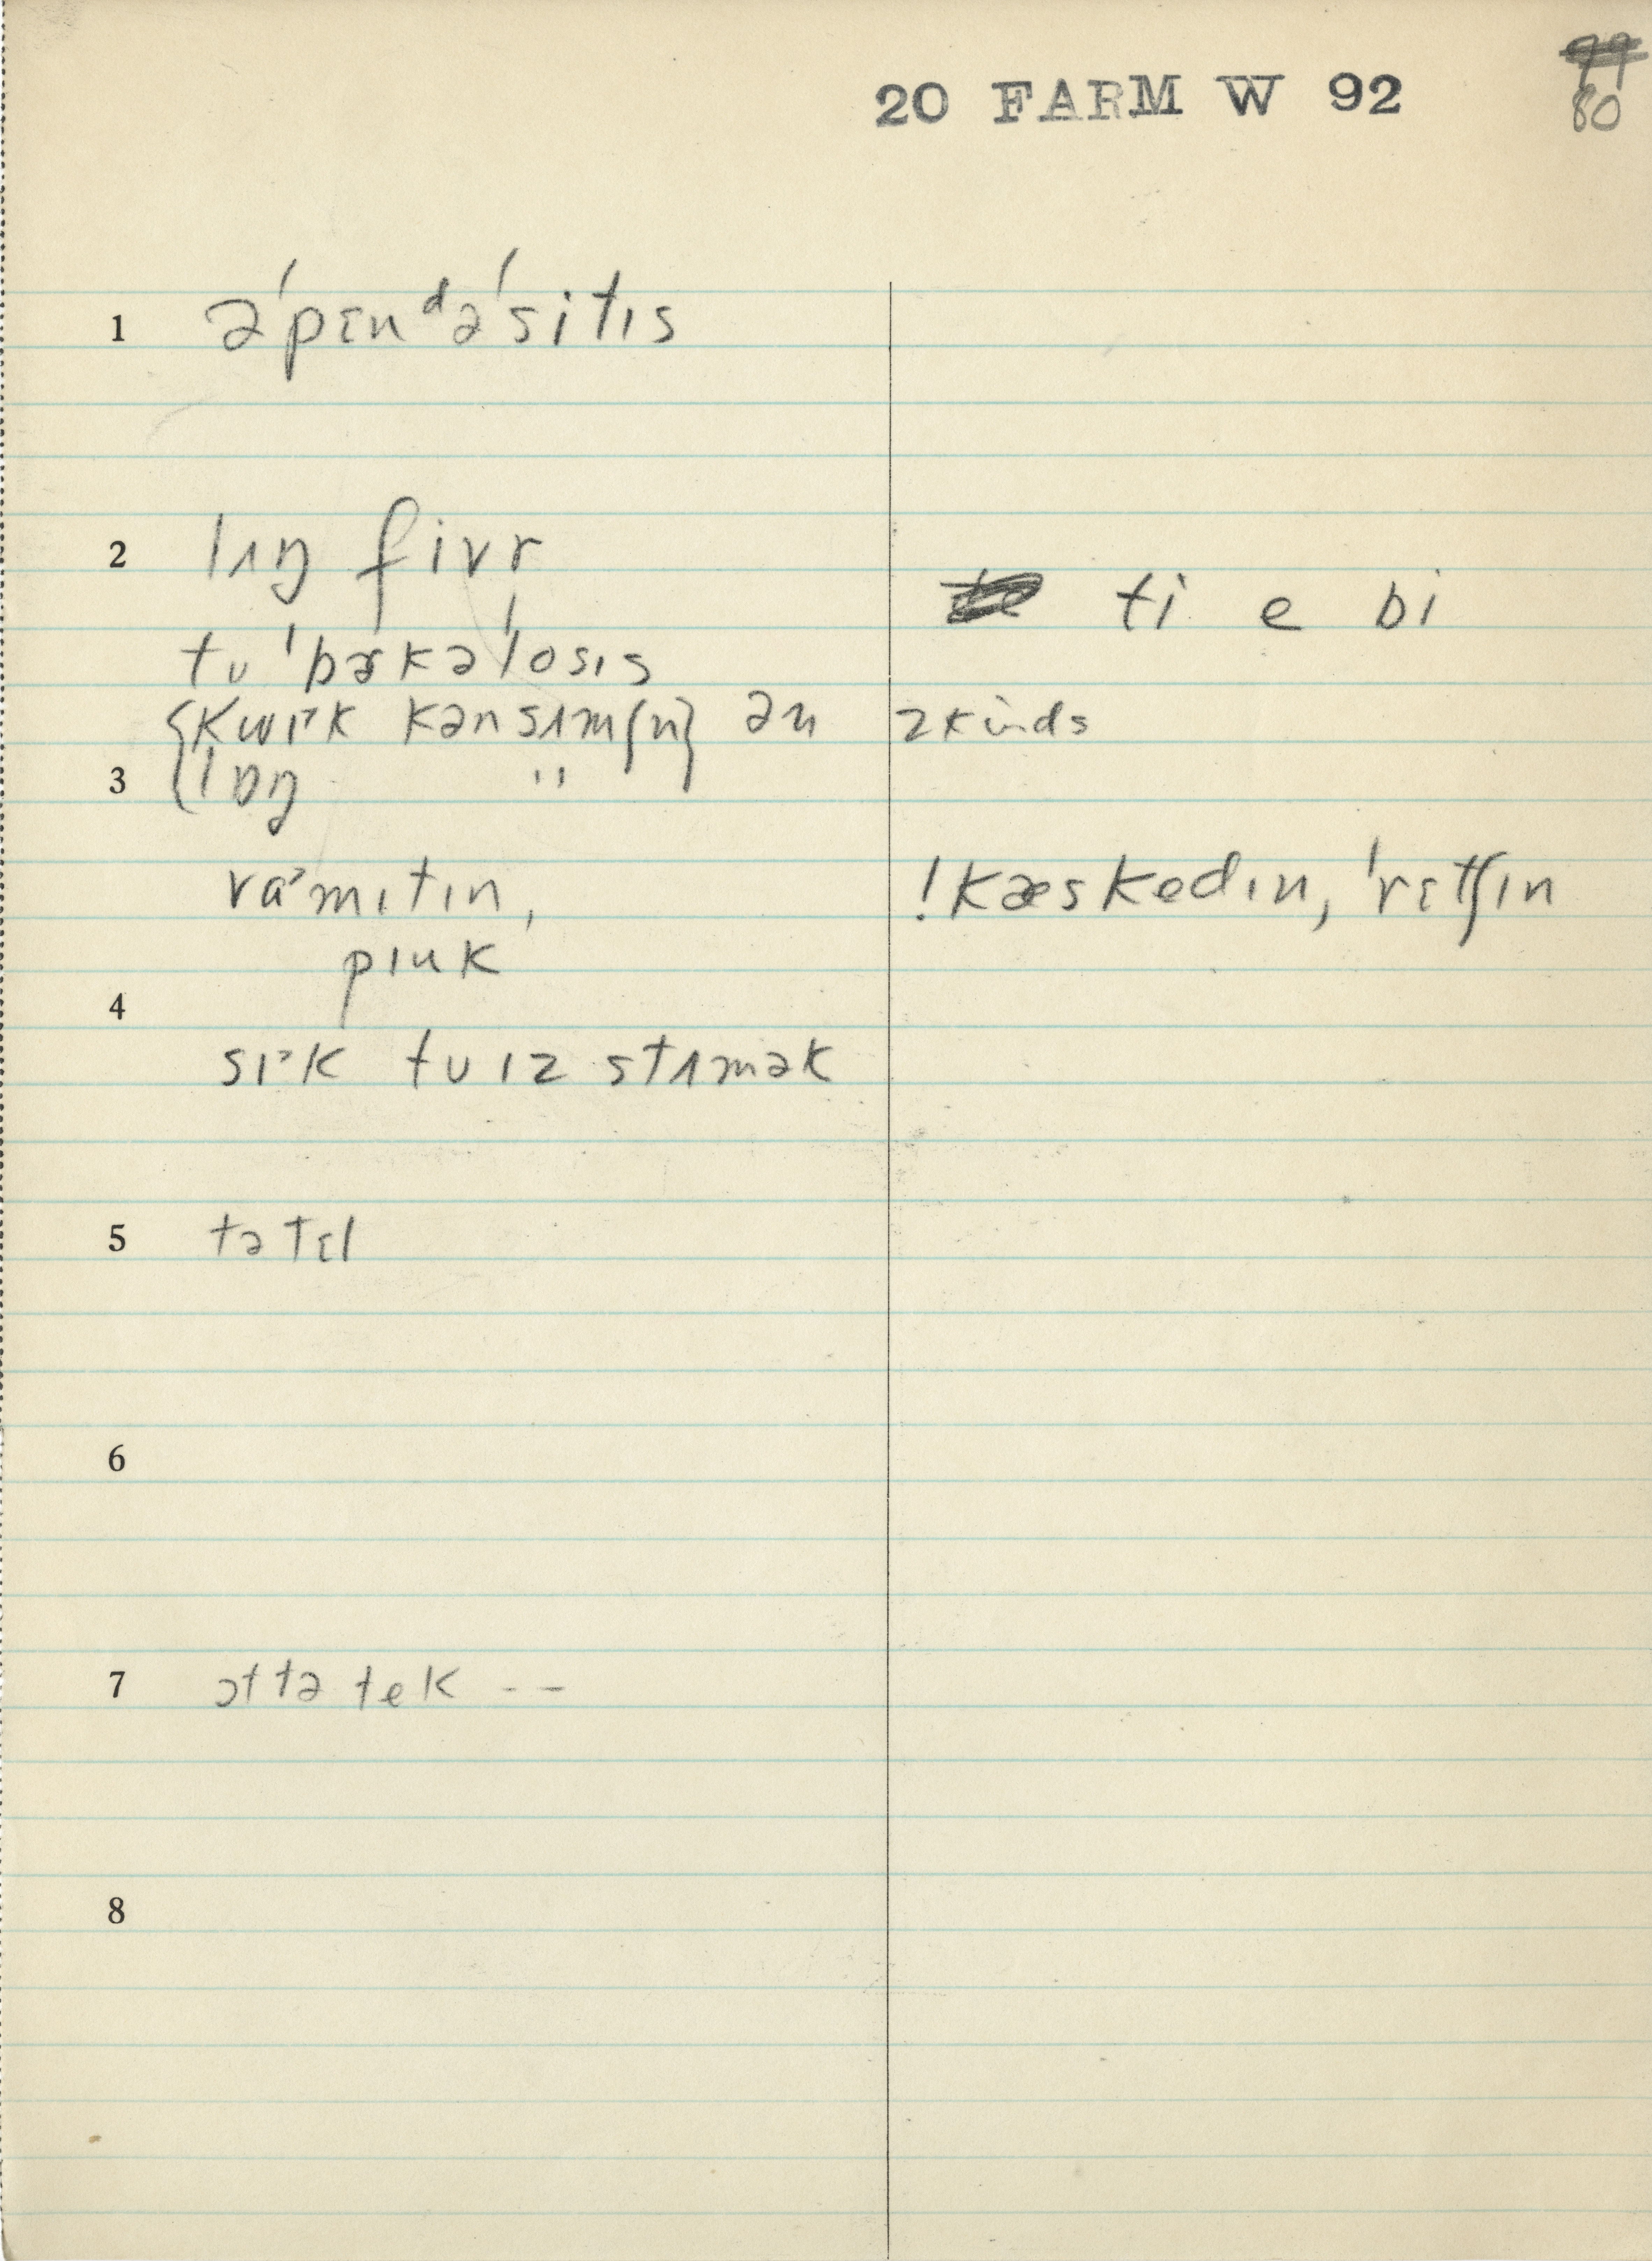 20 FARM W 92
80
1 ə'pɛnᵈə'sitɪs
2 lʌŋ fivr
ti e bi
tu'bɚkə'losɪs
{kwɪˑk kənsʌm{n} ən 2 kinds
3 {lɒŋ "
vɑˑmɪtɪn, !kæskedɪn, 'rɛtʃɪn
pɪuk
4
sɪˑk tu ɪz stʌmək
5 tətɛl
6
7 ɔttə tek --
8